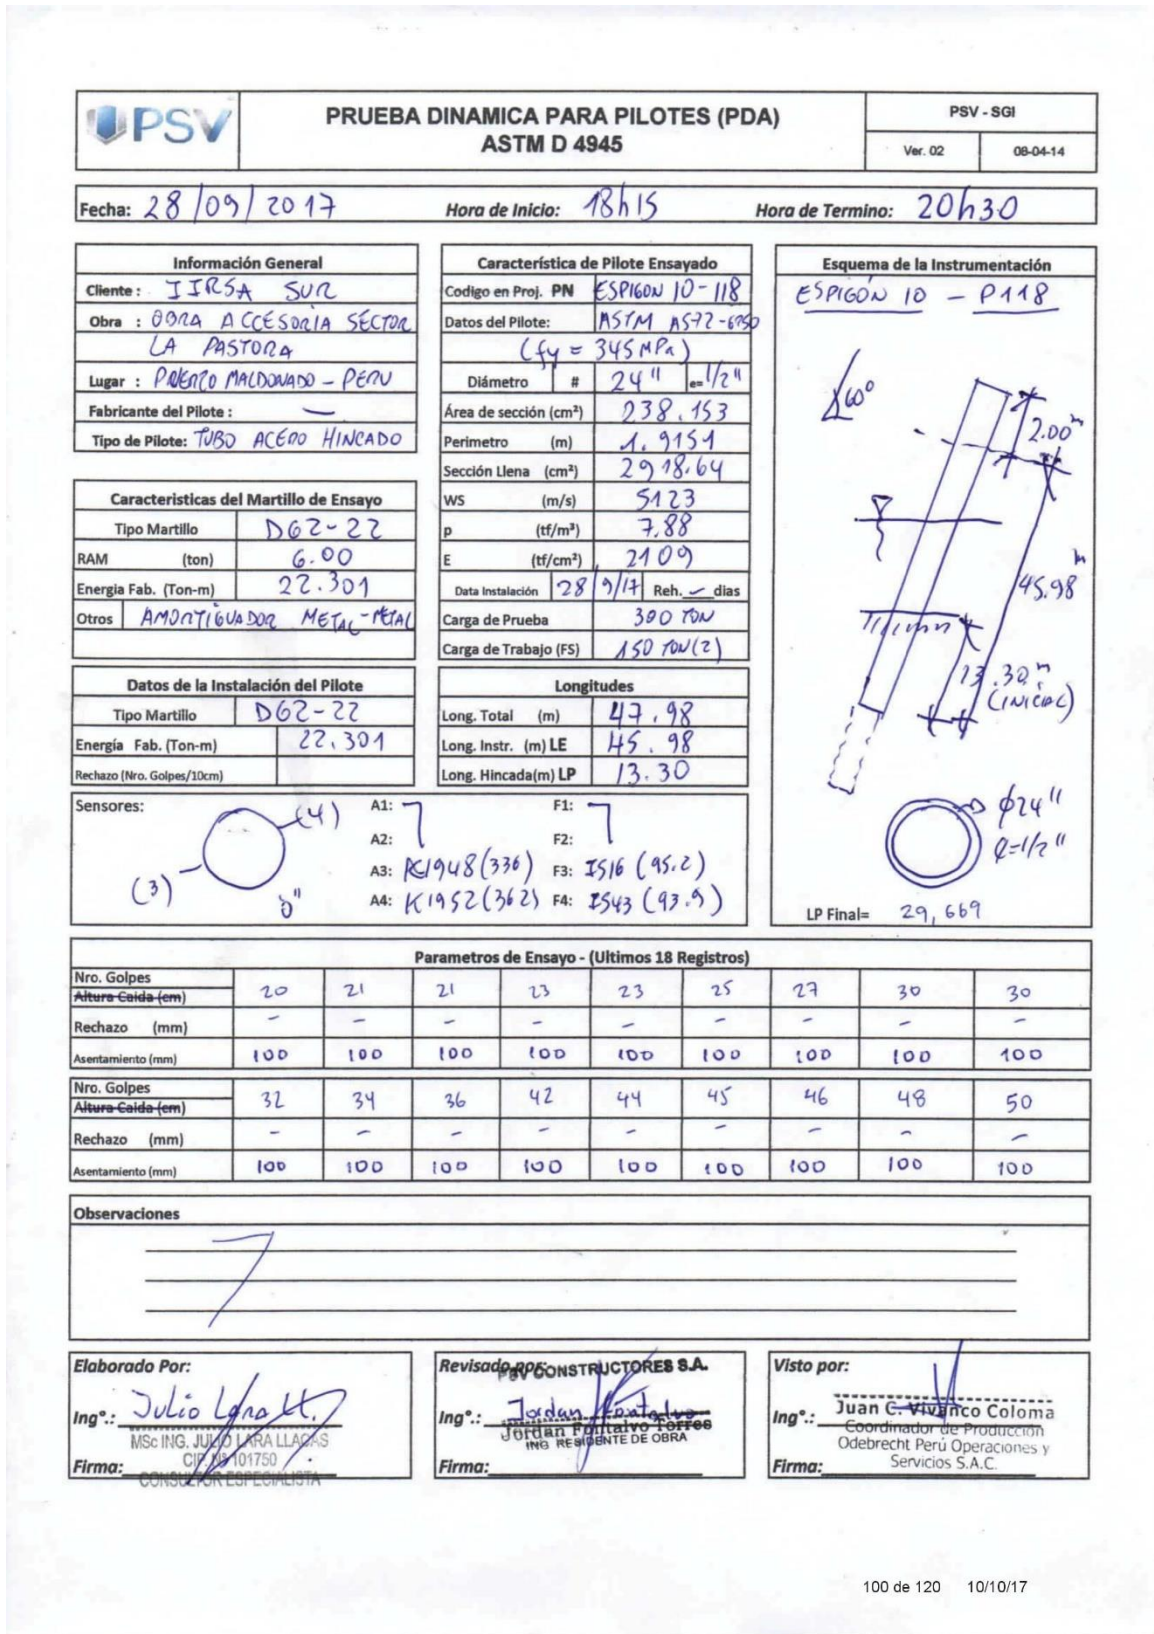 PSV
PRUEBA DINAMICA PARA PILOTES (PDA)
ASTM D 4945
PSV - SGI
Ver. 02 08-04-14
Fecha: 28/09/2017 Hora de Inicio: 18h15 Hora de Termino: 20h30
Información General
Cliente: IIRSA SUR
Obra : OBRA ACCESORIA SECTOR
LA PASTORA
Lugar : PUERTO MALDONADO - PERU
Fabricante del Pilote : —
Tipo de Pilote: TUBO ACERO HINCADO
Caracteristicas del Martillo de Ensayo
Tipo Martillo D62-22
RAM (ton) 6.00
Energia Fab. (Ton-m) 22.301
Otros AMORTIGUADOR METAL-METAL
Datos de la Instalación del Pilote
Tipo Martillo D62-22
Energía Fab. (Ton-m) 22.301
Rechazo (Nro. Golpes/10cm)
Característica de Pilote Ensayado
Codigo en Proj. PN ESPIGON 10-118
Datos del Pilote: ASTM A572-6R50
(fy = 345 MPa)
Diámetro # 24" e= 1/2"
Área de sección (cm²) 238.153
Perimetro (m) 1.9151
Sección Llena (cm²) 2918.64
WS (m/s) 5123
p (tf/m³) 7.88
E (tf/cm²) 2109
Data Instalación 28/9/17 Reh. — dias
Carga de Prueba 300 TON
Carga de Trabajo (FS) 150 TON (2)
Longitudes
Long. Total (m) 47.98
Long. Instr. (m) LE 45.98
Long. Hincada(m) LP 13.30
Esquema de la Instrumentación
ESPIGÓN 10 - P118
60°
2.00 m
45.98 m
13.30 m
(INICIAL)
φ24"
e=1/2"
LP Final= 29,669
Sensores:
(4)
(3)
A1: F1:
A2: F2:
A3: K1948 (336) F3: I516 (95.2)
A4: K1952 (362) F4: I543 (93.9)
Parametros de Ensayo - (Ultimos 18 Registros)
Nro. Golpes
Altura Caida (cm) 20 21 21 23 23 25 27 30 30
Rechazo (mm) - - - - - - - - -
Asentamiento (mm) 100 100 100 100 100 100 100 100 100
Nro. Golpes
Altura Caida (cm) 32 34 36 42 44 45 46 48 50
Rechazo (mm) - - - - - - - - -
Asentamiento (mm) 100 100 100 100 100 100 100 100 100
Observaciones
Elaborado Por:
Ing°.: Julio Lara Ll.
MSc ING. JULIO LARA LLAGAS
CIP. Nº 101750
CONSULTOR ESPECIALISTA
Firma:
Revisado por:
PSV CONSTRUCTORES S.A.
Ing°.: Jordan Fontalvo
Jordan Fontalvo Torres
ING RESIDENTE DE OBRA
Firma:
Visto por:
Ing°.: Juan C. Vivanco Coloma
Coordinador de Producción
Odebrecht Perú Operaciones y
Servicios S.A.C.
Firma:
100 de 120 10/10/17